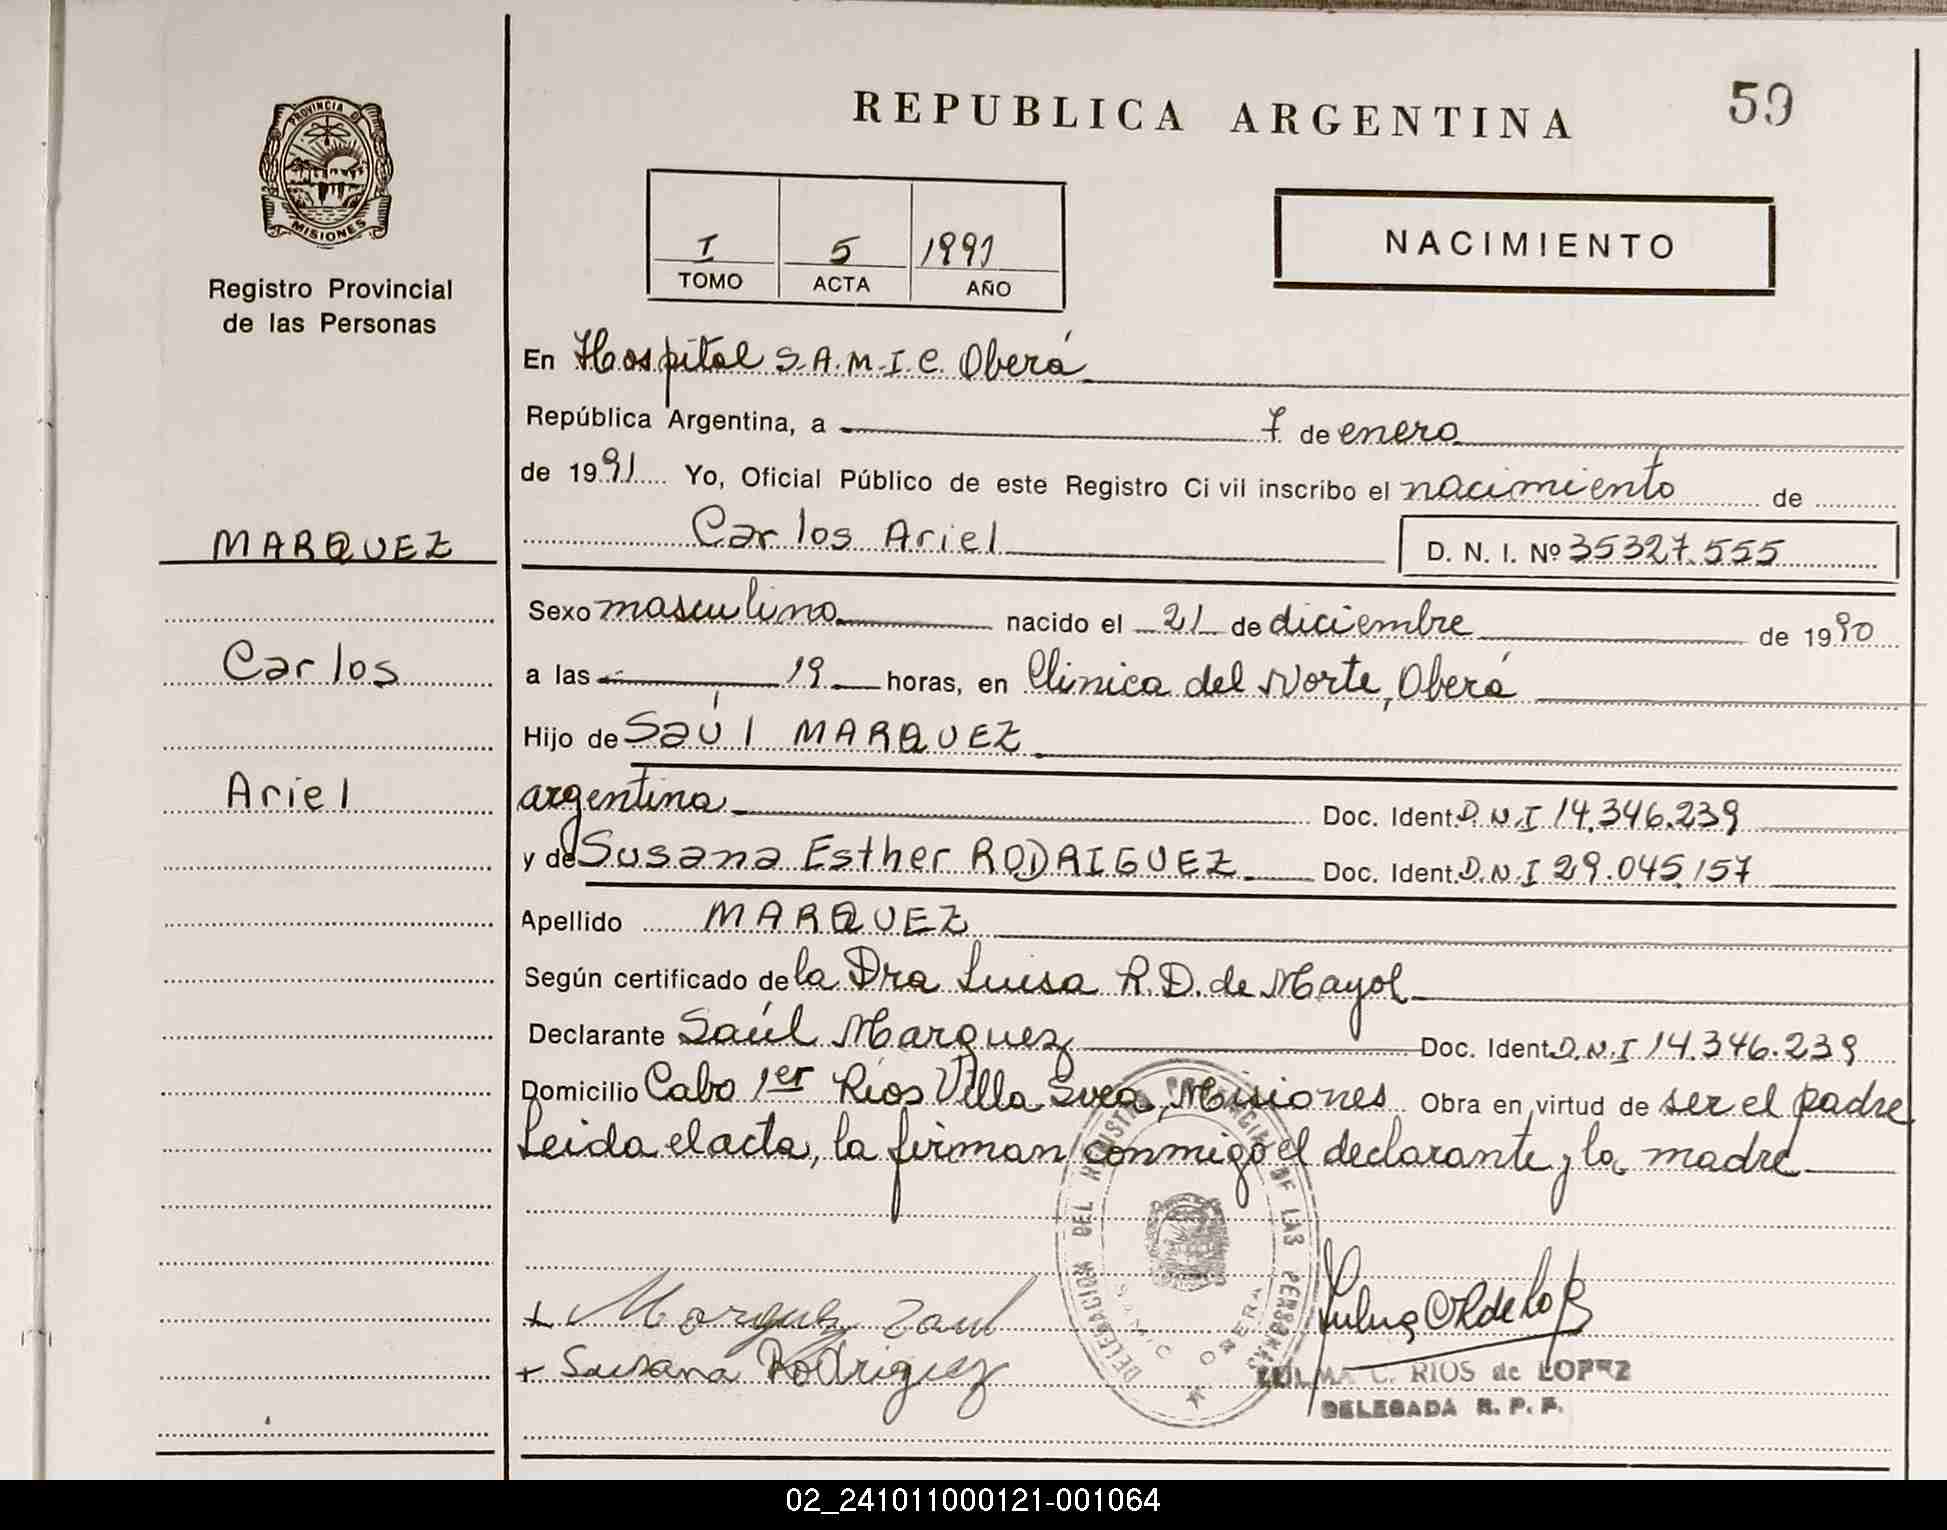 PROVINCIA DE
MISIONES
Registro Provincial
de las Personas
MARQUEZ
Carlos
Ariel
REPUBLICA ARGENTINA
59
I 5 1991
TOMO ACTA AÑO
NACIMIENTO
En Hospital S.A.M.I.C. Oberá
República Argentina, a 7 de enero
de 1991 Yo, Oficial Público de este Registro Ci vil inscribo el nacimiento de
Carlos Ariel D. N. I. Nº 35327.555
Sexo masculino nacido el 21 de diciembre de 1990
a las 19 horas, en Clinica del Norte, Oberá
Hijo de Saúl MARQUEZ
argentina Doc. Ident. D.N.I 14.346.239
y de Susana Esther RODRIGUEZ Doc. Ident. D.N.I 29.045.157
Apellido MARQUEZ
Según certificado de la Dra Luisa R.D. de Mayol
Declarante Saúl Marquez Doc. Ident. D.N.I 14.346.239
Domicilio Cabo 1er Ríos Villa Svea, Misiones Obra en virtud de ser el padre
Leida el acta, la firman conmigo el declarante y la madre
DELEGACION DEL REGISTRO PROVINCIAL DE LAS PERSONAS
OBERA
+ Marquez Saul
+ Susana Rodriguez
ZULMA C. RIOS de LOPEZ
DELEGADA R. P. P.
02_241011000121-001064